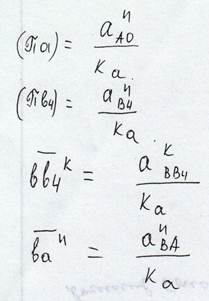 (πa) = a^n_{AO} / K_a.
(πв₄) = a^n_{B4} / K_a.
\overline{вв₄}^к = a^к_{BB4} / K_a
\overline{вa}^n = a^n_{BA} / K_a